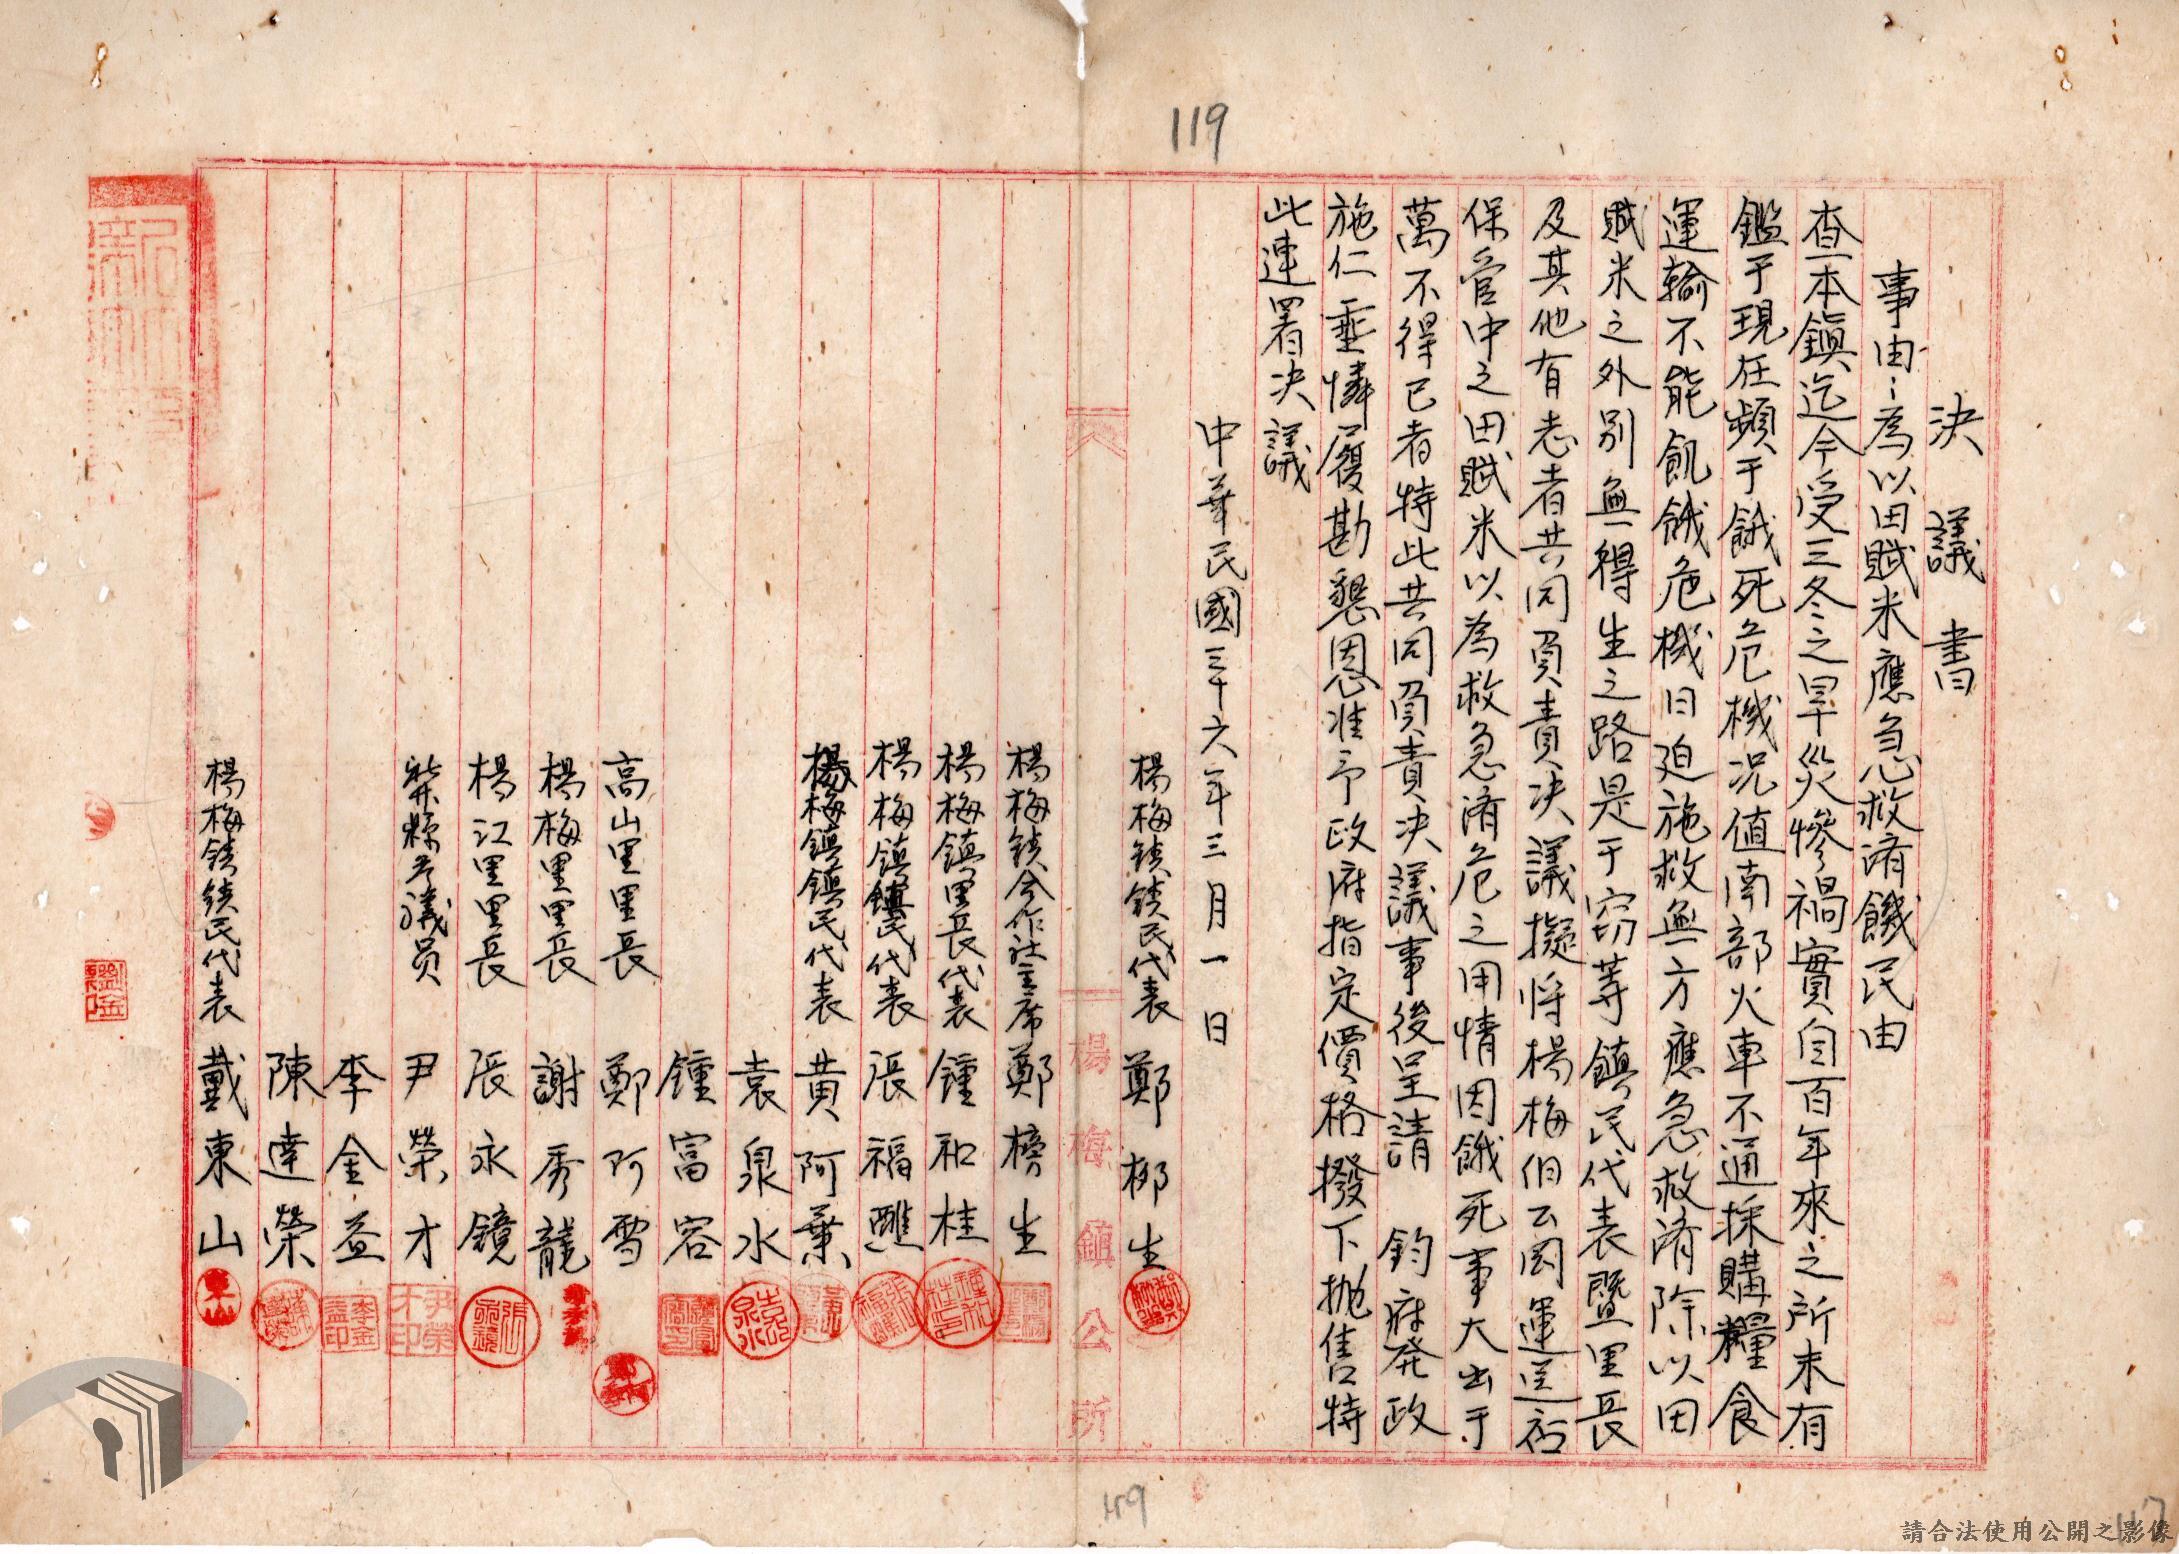 119
決議書
事由：為以田賦米應急救濟饑民由
查本鎮迄今受三冬之旱災慘禍實自百年來之所未有
鑑于現在頻于餓死危機况值南部火車不通採購糧食
運輸不能飢餓危機日迫施救無方應急救濟除以田
賦米之外別無得生之路是于窃等鎮民代表暨里長
及其他有志者共同負責決議擬将楊梅伯公岡運送
保管中之田賦米以為救急濟危之用情因餓死事大出于
萬不得已者特此共同負責决議事後呈請 鈞府発政
施仁垂憐履勘懇恩准予政府指定價格撥下拋售特
此連署決議
中華民國三十六年三月一日
楊梅鎮鎮民代表 鄭椰生
楊梅鎮公所
楊梅鎮合作社主席 鄭榜生
楊梅鎮里長代表 鍾和桂
楊梅鎮鎮民代表 張福
楊梅鎮鎮民代表 黃阿葉
袁泉水
鍾富容
高山里里長 鄭阿雪
楊梅里里長 謝秀龍
楊江里里長 張永鏡
新縣参議员 尹榮才
李金益
陳達榮
楊梅鎮鎮民代表 戴東山
東山
李金益印
尹榮才印
張永鏡
袁泉水
119
117
請合法使用公開之影像